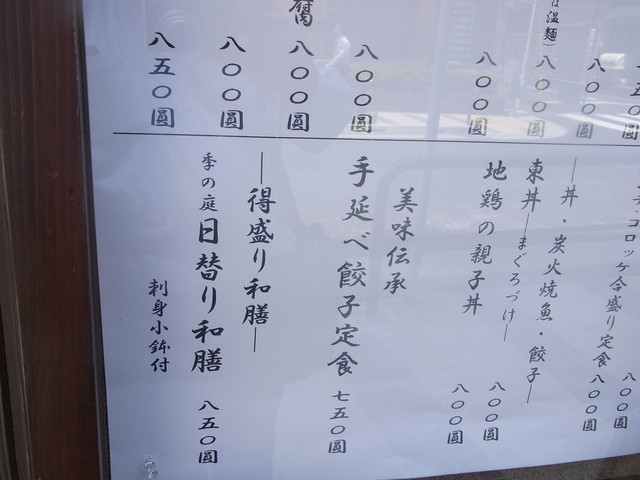 は温麺）
腐
五〇圓
八〇〇圓
八〇〇圓
八〇〇圓
八〇〇圓
八〇〇圓
八〇〇圓
八五〇圓
コロッケ合盛り定食 八〇〇圓
―丼・炭火焼魚・餃子―
八〇〇圓
東丼―まぐろづけ― 八〇〇圓
地鶏の親子丼 八〇〇圓
美味伝承
手延べ餃子定食 七五〇圓
―得盛り和膳―
季の庭 日替り和膳 八五〇圓
刺身小鉢付